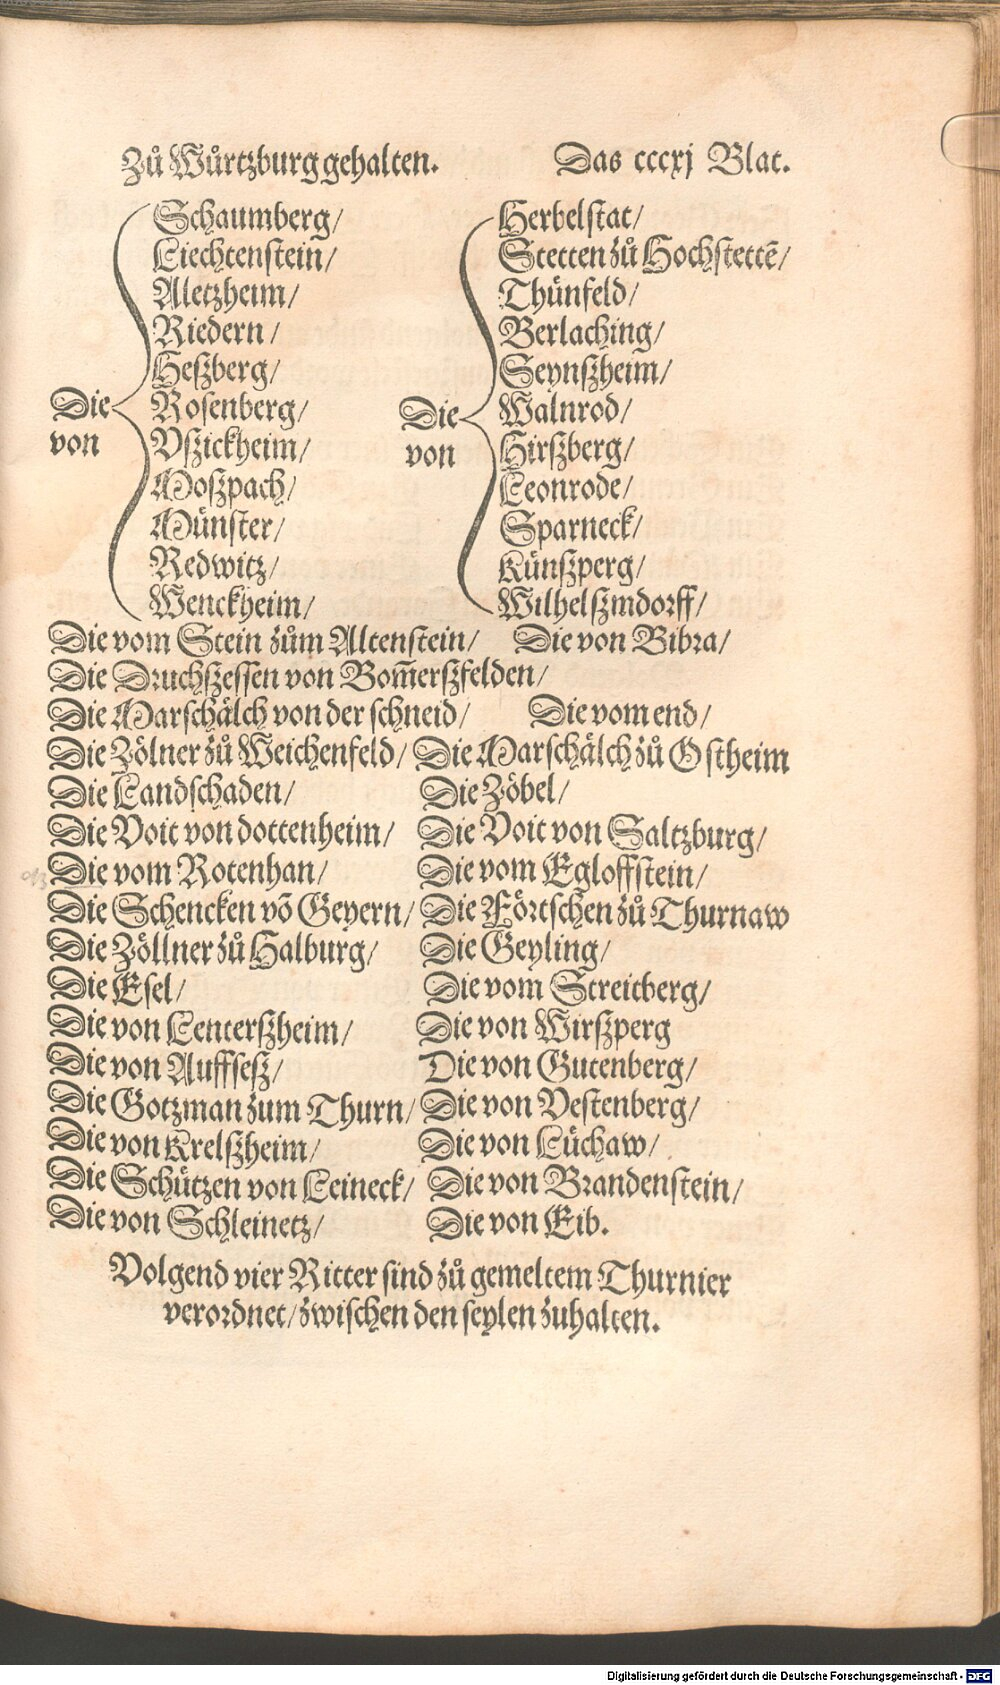 Zů Würtzburg gehalten. Das cccxj Blat.
Die von
Schaumberg/
Liechtenstein/
Aletzheim/
Riedern/
Heßberg/
Rosenberg/
Vßickheim/
Moßpach/
Münster/
Redwitz/
Wenckheim/
Die von
Herbelstat/
Stetten zů Hochstettē/
Thünfeld/
Berlaching/
Seynßheim/
Walnrod/
Hirßberg/
Leonrode/
Sparneck/
Künßperg/
Wilhelßmdorff/
Die vom Stein zům Altenstein/ Die von Bibra/
Die Druchßessen von Bom̄erßfelden/
Die Marschälch von der schneid/ Die vom end/
Die Zölner zů Weichenfeld/ Die Marschälch zů Ostheim
Die Landschaden/ Die Zöbel/
Die Voit von dottenheim/ Die Voit von Saltzburg/
Die vom Rotenhan/ Die vom Egloffstein/
Die Schencken vō Geyern/ Die Förtschen zů Thurnaw
Die Zöllner zů Halburg/ Die Geyling/
Die Esel/ Die vom Streitberg/
Die von Lenterßheim/ Die von Wirßperg
Die von Auffseß/ Die von Gutenberg/
Die Gotzman zum Thurn/ Die von Vestenberg/
Die von Krelßheim/ Die von Lüchaw/
Die Schützen von Leineck/ Die von Brandenstein/
Die von Schleinetz/ Die von Eib.
Volgend vier Ritter sind zů gemeltem Thurnier
verordnet/zwischen den seylen zuhalten.
Digitalisierung gefördert durch die Deutsche Forschungsgemeinschaft - DFG